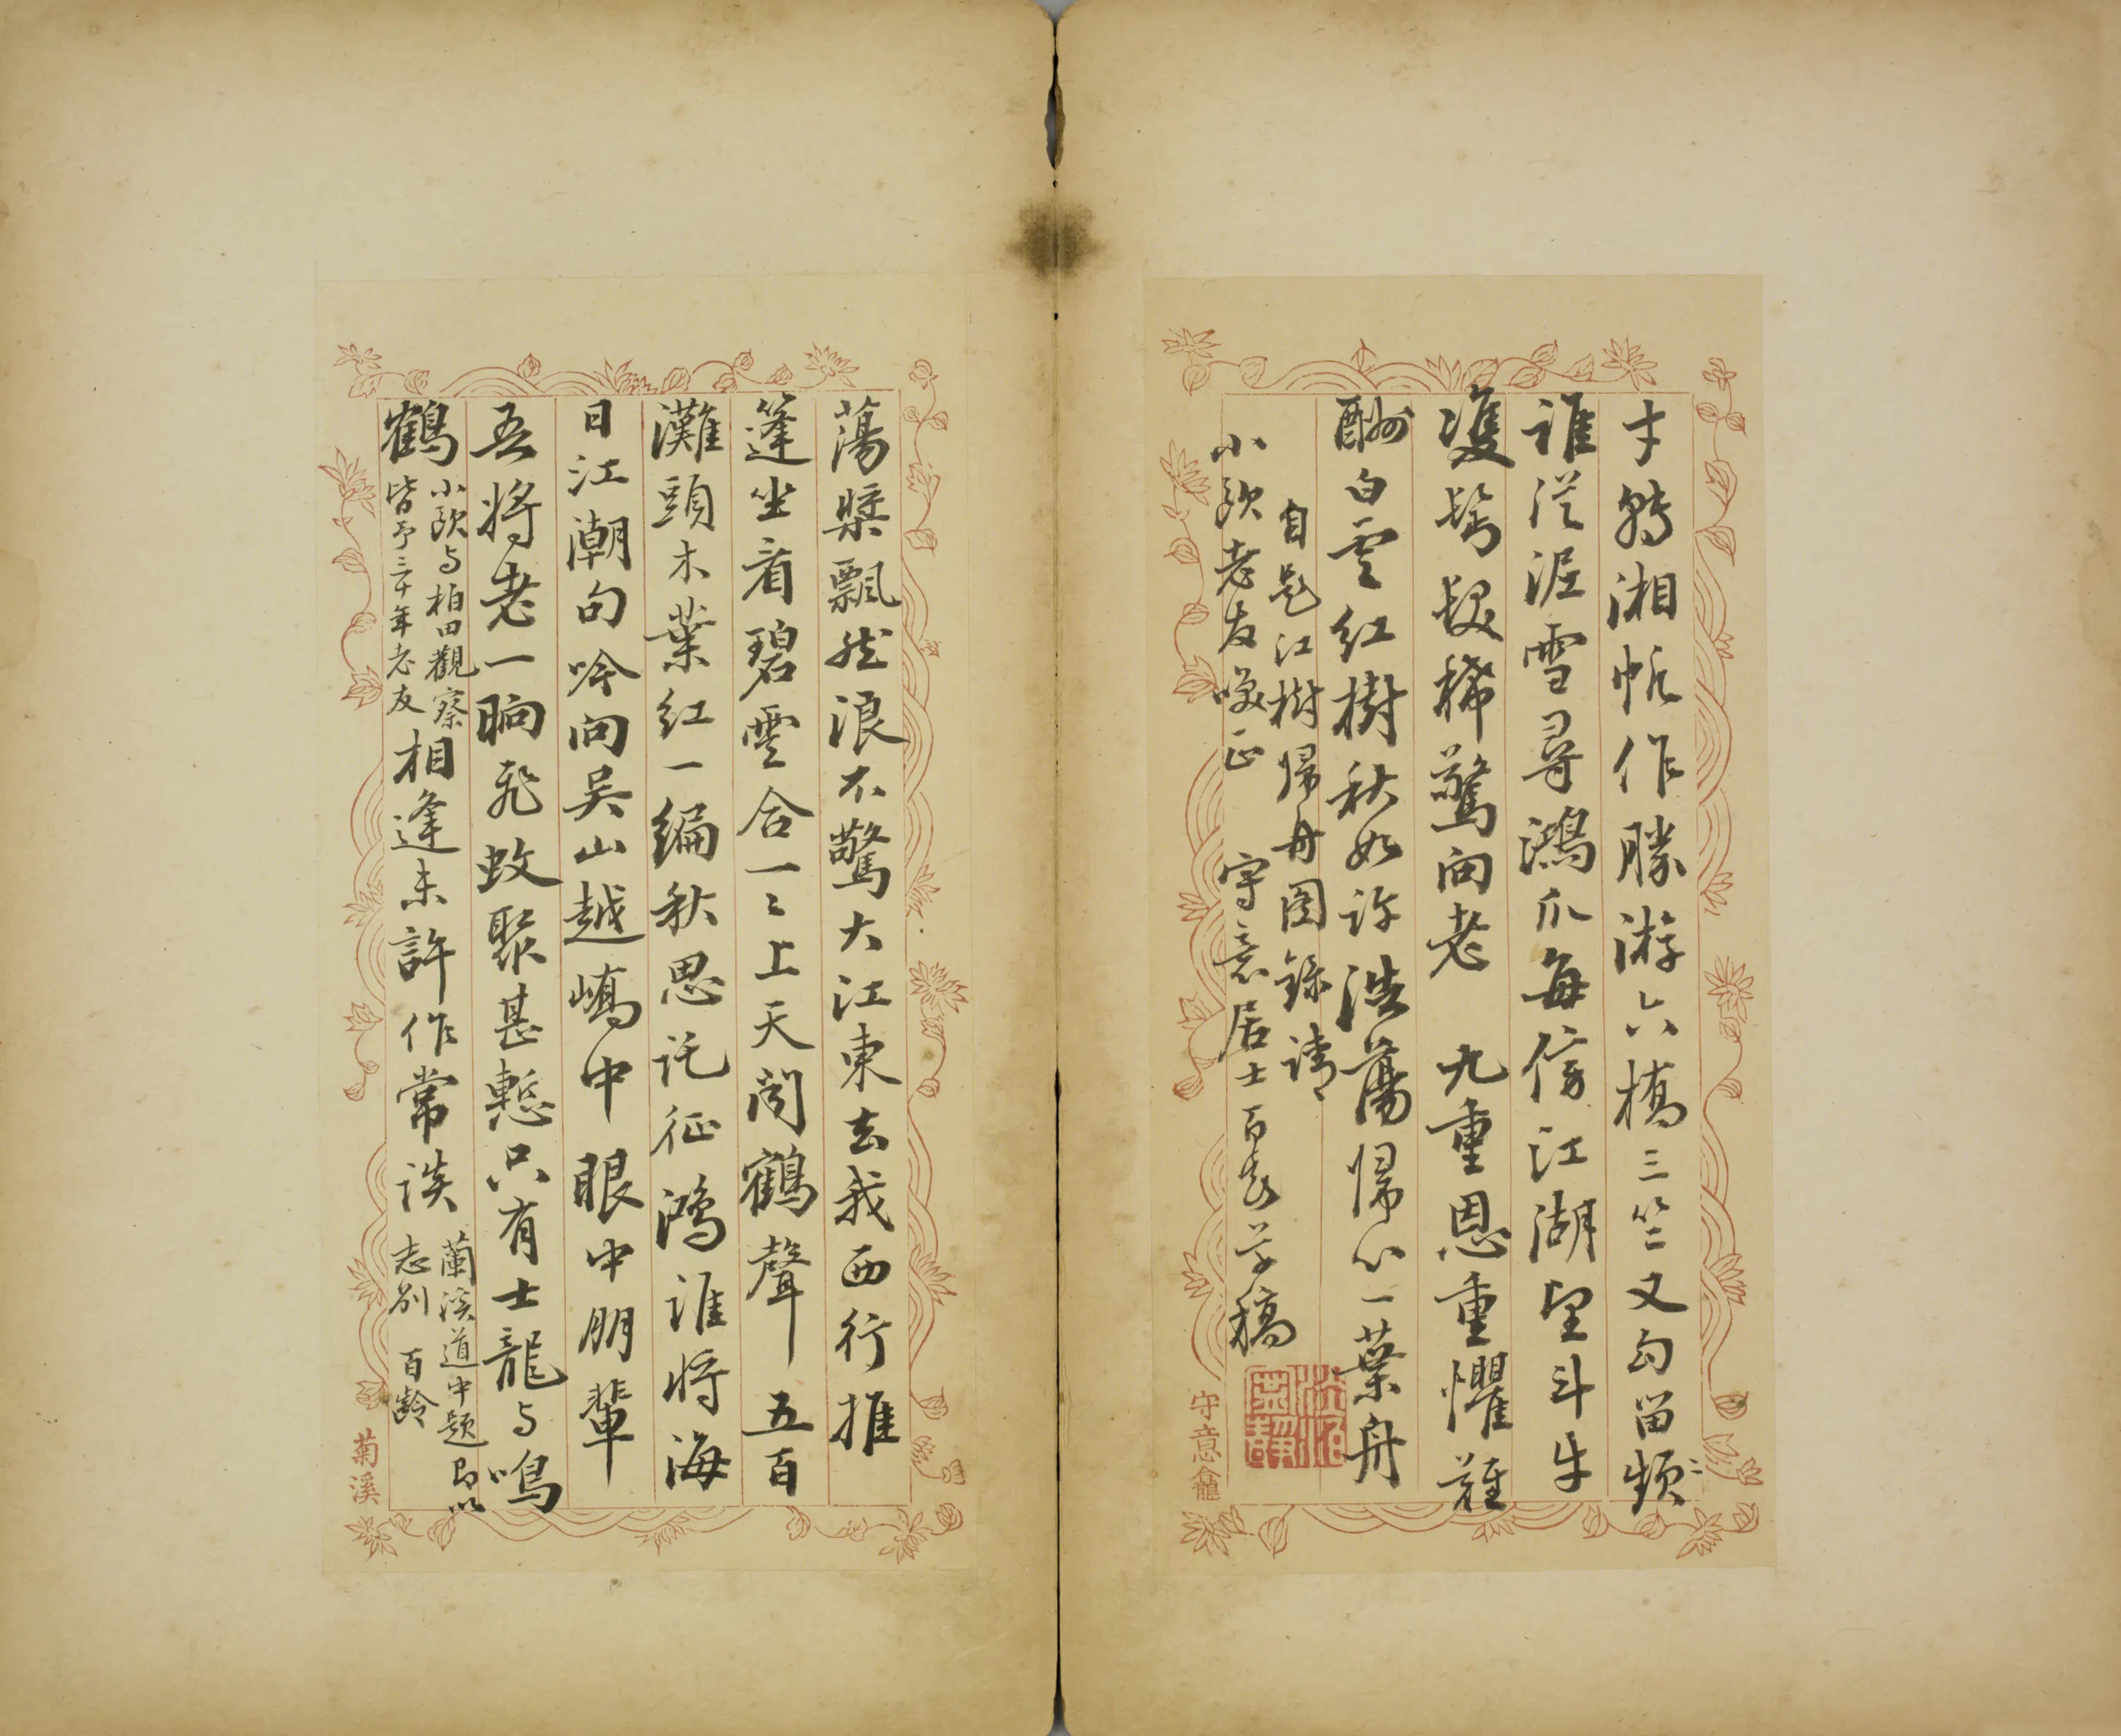 才轉湘帆作勝游六橋三竺又勾留頻〻
誰從泥雪尋鴻爪每傍江湖望斗牛
雙鬢髮稀驚向老 九重恩重懼難
酬白雲紅樹秋如許浩蕩歸心一葉舟
自題江樹歸舟圖錄請
小歐老友喚正 守意居士百齡草稿
守意龕
蕩槳飄然浪不驚大江東去我西行推
篷坐看碧雲合一〻上天聞鶴聲 五百
灘頭木葉紅一編秋思託征鴻誰將海
日江潮句吟向吳山越嶠中 眼中朋輩
吾將老一晌飛蚊聚甚慙只有士龍与鳴
鶴 小歐与柏田觀察
皆予三十年老友 相逢未許作常談 蘭溪道中題句以
志別 百齡
菊溪